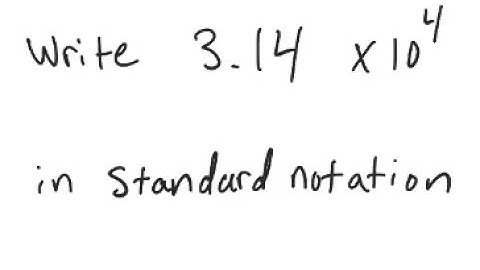 Write 3.14 x10⁴
in standard notation